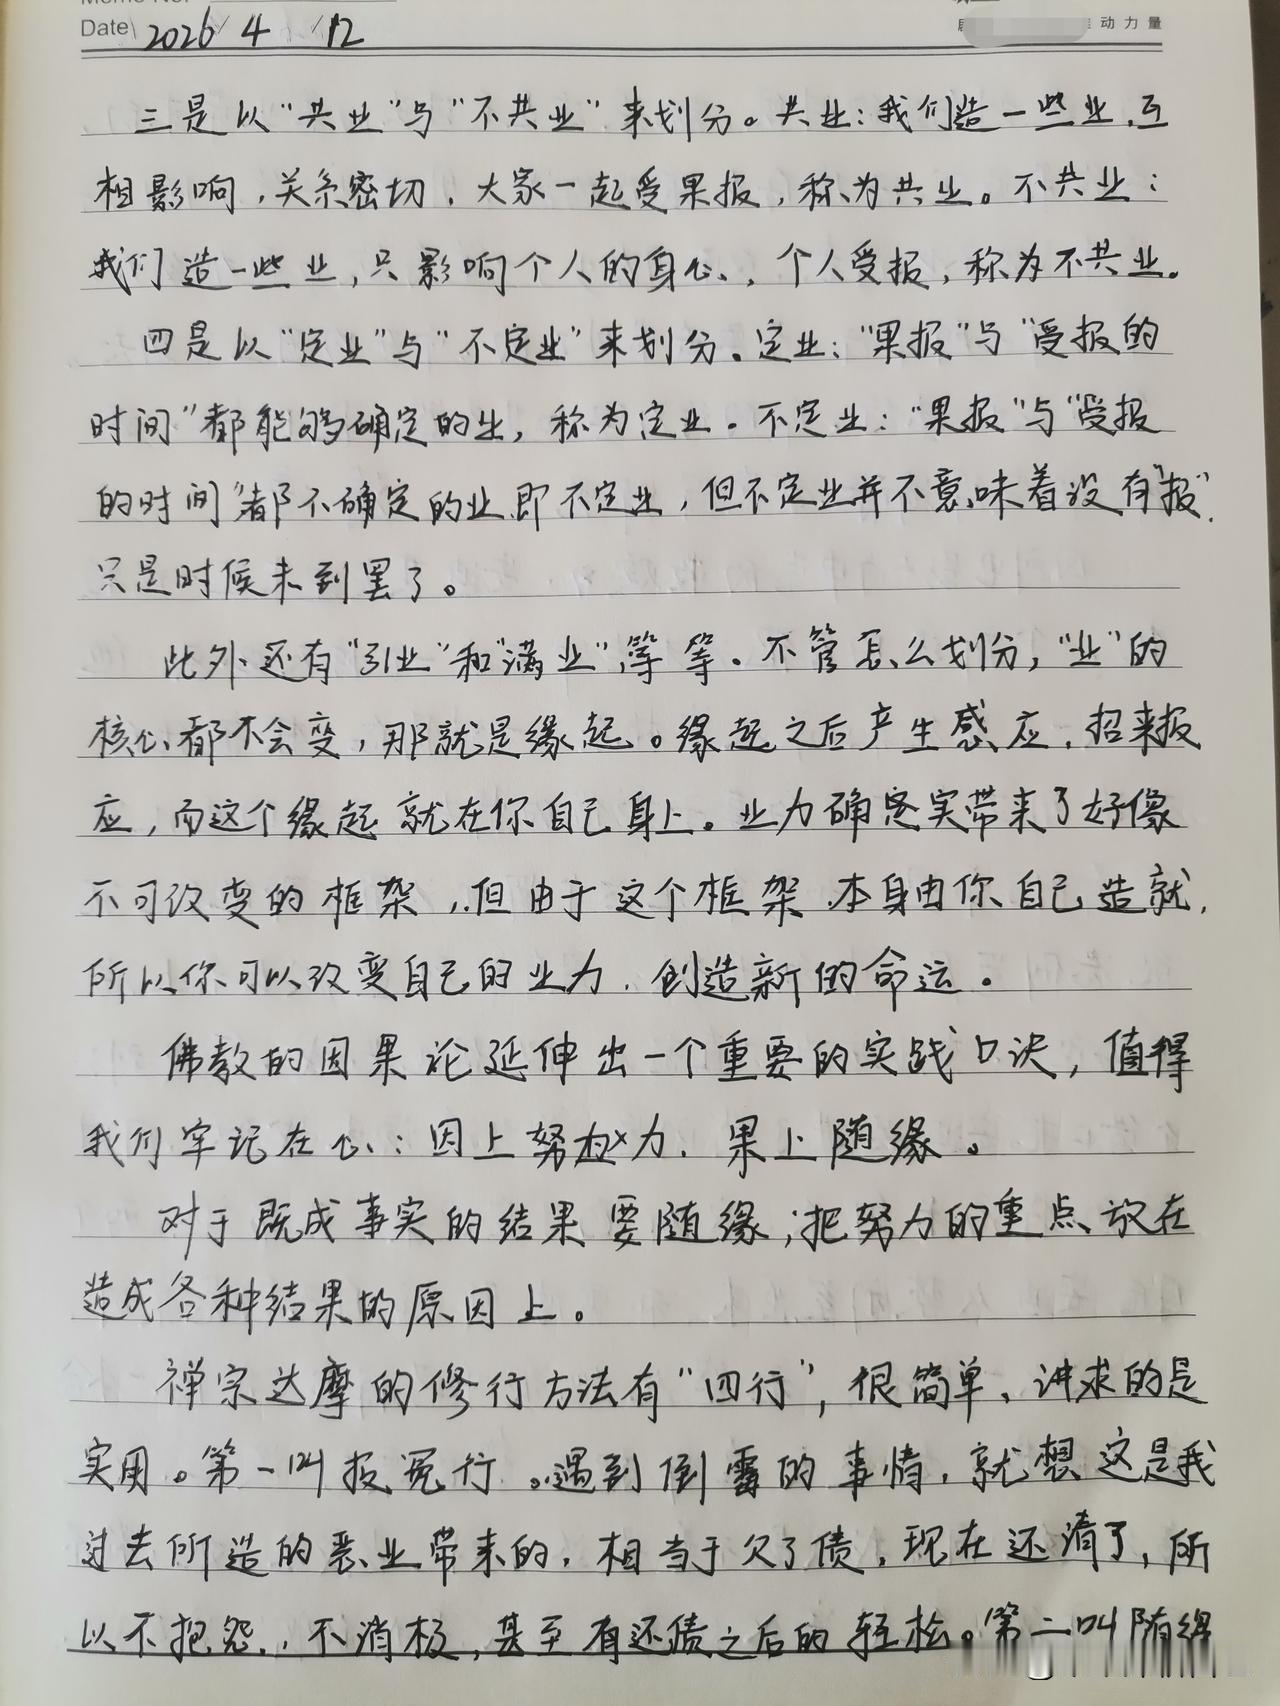 Date 2026 / 4 / 12
动力量
三是以“共业”与“不共业”来划分。共业：我们造一些业，互
相影响，关系密切，大家一起受果报，称为共业。不共业：
我们造一些业，只影响个人的身心，个人受报，称为不共业。
四是以“定业”与“不定业”来划分。定业：“果报”与“受报的
时间”都能够确定的业，称为定业。不定业：“果报”与“受报
的时间”都不确定的业即不定业，但不定业并不意味着没有“报”，
只是时候未到罢了。
此外还有“引业”和“满业”等等。不管怎么划分，“业”的
核心都不会变，那就是缘起。缘起之后产生感应，招来报
应，而这个缘起就在你自己身上。业力确实带来了好像
不可改变的框架，但由于这个框架本身由你自己造就，
所以你可以改变自己的业力，创造新的命运。
佛教的因果论延伸出一个重要的实践口诀，值得
我们牢记在心：因上努力，果上随缘。
对于既成事实的结果要随缘；把努力的重点放在
造成各种结果的原因上。
禅宗达摩的修行方法有“四行”，很简单，讲求的是
实用。第一叫报冤行。遇到倒霉的事情，就想这是我
过去所造的恶业带来的，相当于欠了债，现在还清了，所
以不抱怨，不消极，甚至有还债之后的轻松。第二叫随缘